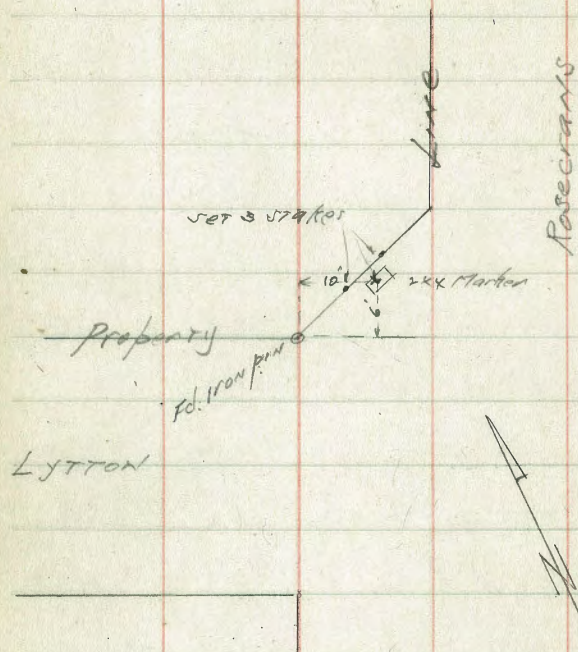 Line
Rosecrans
set 3 stakes
10'
2x4 Marker
6'
Property
Fd. Iron pin
Lytton
N